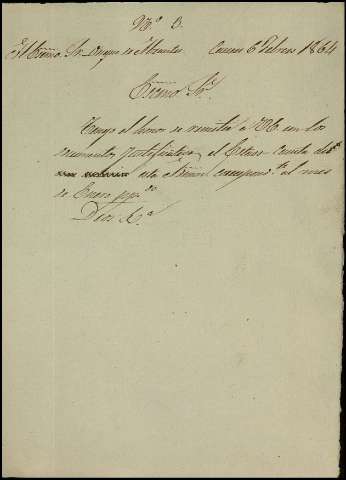 93.º D.
El Excmo. Sr. Duque de Abrantes Cuenca 6 Febrero 1864
Excmo Sr.
Tengo el honor de remitir a VE con los
documentos justificativos, el Estado
de esta correspond.te al mes
de Enero pp.do
Dios &.a